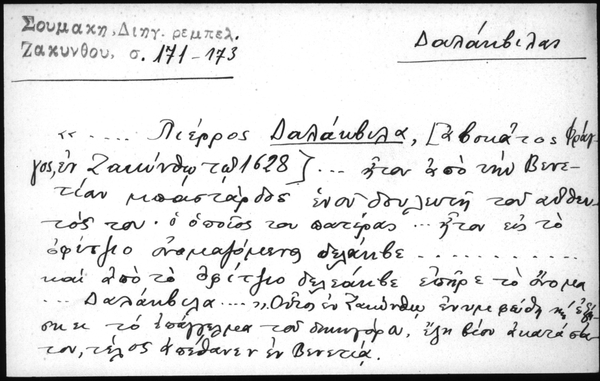 Σουμακη, Διηγ. ρεμπελ.
Ζακυνθου, σ. 171-173
Δαλάκβιλας
«..... Πιέρρος Δαλάκβιλα, [αβοκάτος Φράγ-
γος, ἐν Ζακύνθῳ τῷ 1628]... ἦτον ἀπὸ τὴν Βενε-
τίαν μπαστάρδος ἑνοῦ δουλευτῆ τοῦ αὐθεν-
τός του· ὁ ὁποῖος του πατέρας ... ἦτον εἰς τὸ
ὀφίτζιο ὀνομαζόμενος δελάκβε ...........
καὶ ἀπὸ τὸ ὀφίτζιο δελεάκβε ἐπῆρε τὸ ὄνομα
... Δαλάκβιλα ...». Οὗτος ἐν Ζακύνθῳ ἐνυμφεύθη κ' ἐξή-
σκει τὸ ἐπάγγελμα τοῦ δικηγόρου, ἔζη βίον ἀκατάστα-
τον, τέλος ἀπέθανεν ἐν Βενετίᾳ.